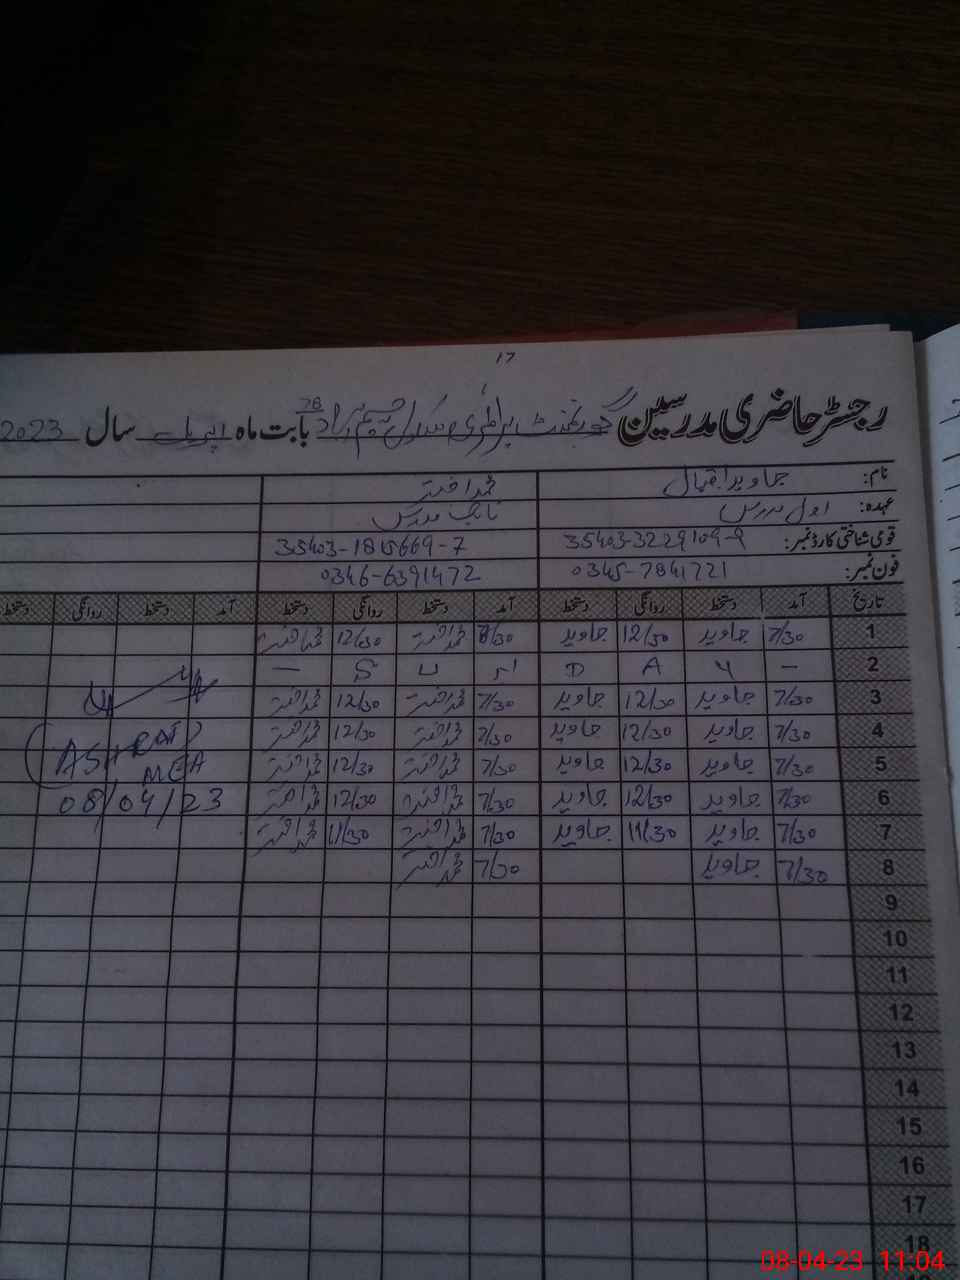 17
رجسٹر حاضری مدرسین گورنمنٹ پرائمری سکول 78 بابت ماہ اپریل سال 2023
نام: جاوید اقبال محمد اختر
عہدہ: اول مدرس نائب مدرس
قومی شناختی کارڈ نمبر: 35403-3229109-9 35403-1815669-7
فون نمبر: 0345-7841721 0346-6391472
تاریخ آمد دستخط روانگی دستخط آمد دستخط روانگی دستخط آمد دستخط روانگی دستخط
1 7/30 جاوید 12/30 جاوید 8/30 محمد اختر 12/30 محمد اختر
2 — Y A D N U S —
3 7/30 جاوید 12/30 جاوید 7/30 محمد اختر 12/30 محمد اختر
4 7/30 جاوید 12/30 جاوید 7/30 محمد اختر 12/30 محمد اختر
5 7/30 جاوید 12/30 جاوید 7/30 محمد اختر 12/30 محمد اختر
6 7/30 جاوید 12/30 جاوید 7/30 محمد اختر 12/30 محمد اختر
7 7/30 جاوید 11/30 جاوید 7/30 محمد اختر 11/30 محمد اختر
8 7/30 جاوید 7/30 محمد اختر
(ASHRAF)
MEA
08/04/23
9
10
11
12
13
14
15
16
17
18
08-04-23 11:04